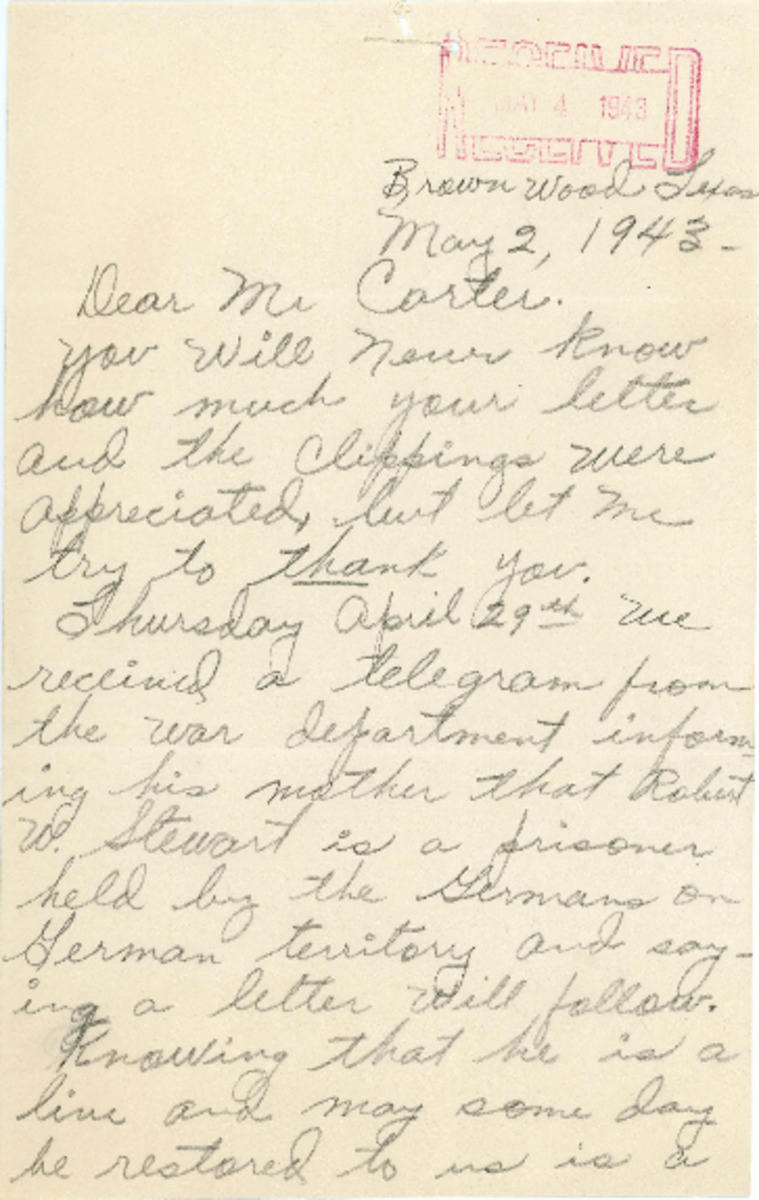 RECEIVED
MAY 4 1943
RECEIVED
Brown Wood Texas
May 2, 1943-
Dear Mr Carter.
You will never know
how much your letter
and the clippings were
appreciated, but let me
try to thank you.
Thursday April 29th we
received a telegram from
the war department inform-
ing his mother that Robert
W. Stewart is a prisoner
held by the Germans on
German territory and say-
ing a letter will follow.
Knowing that he is a
live and may some day
be restored to us is a